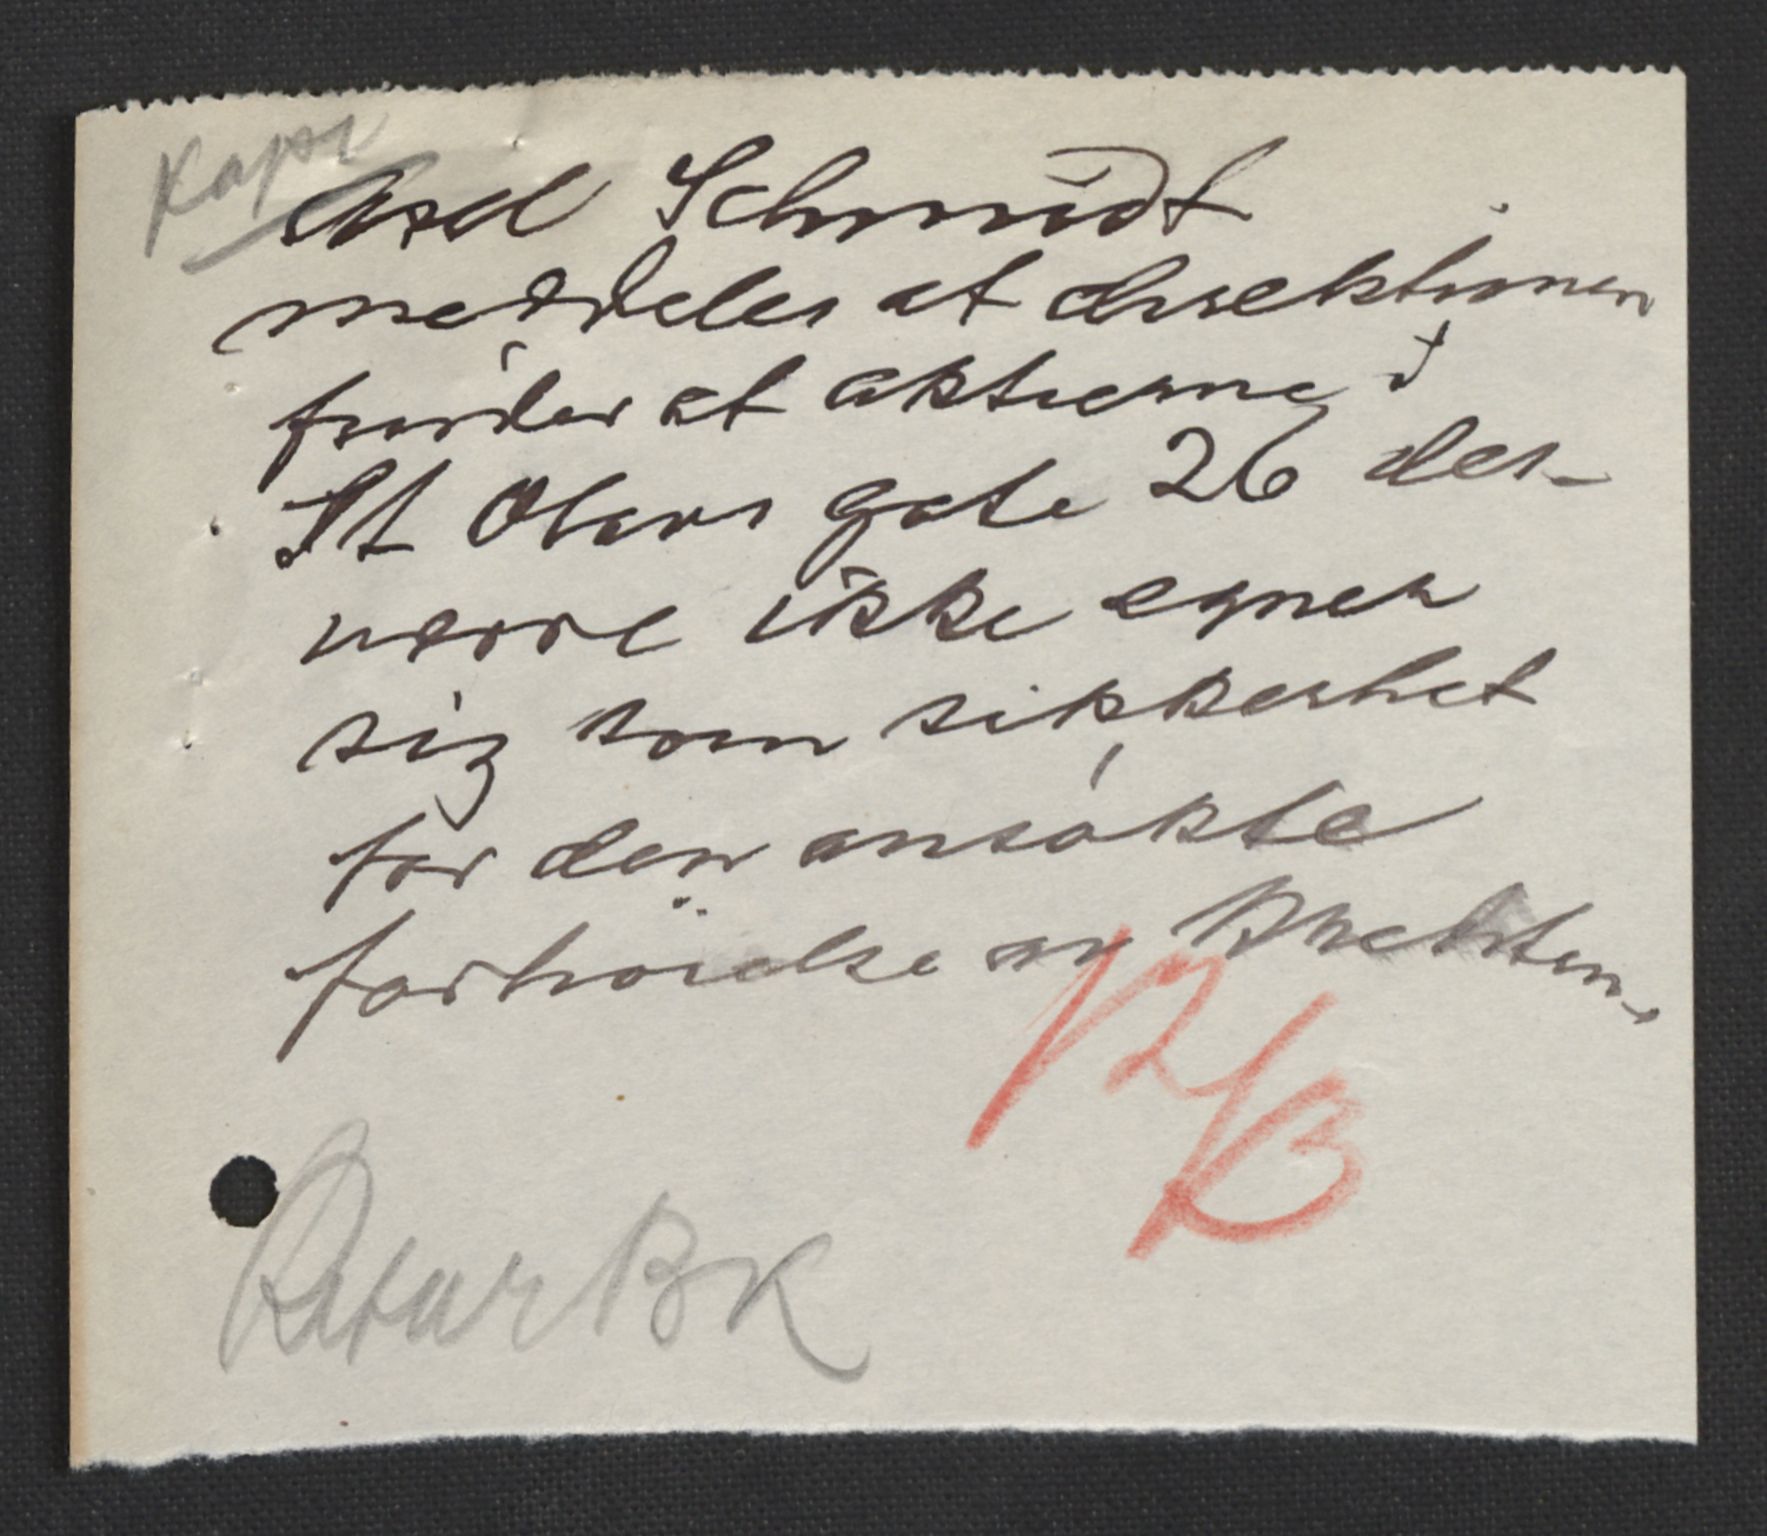 Kapr
Axel Schmidt
meddeles at direktionen
finder at aktierne i
St Olavs gate 26 des-
værre ikke egner
sig som sikkerhet
for den ansøkte
forhöielse av krediten.
Retur BK